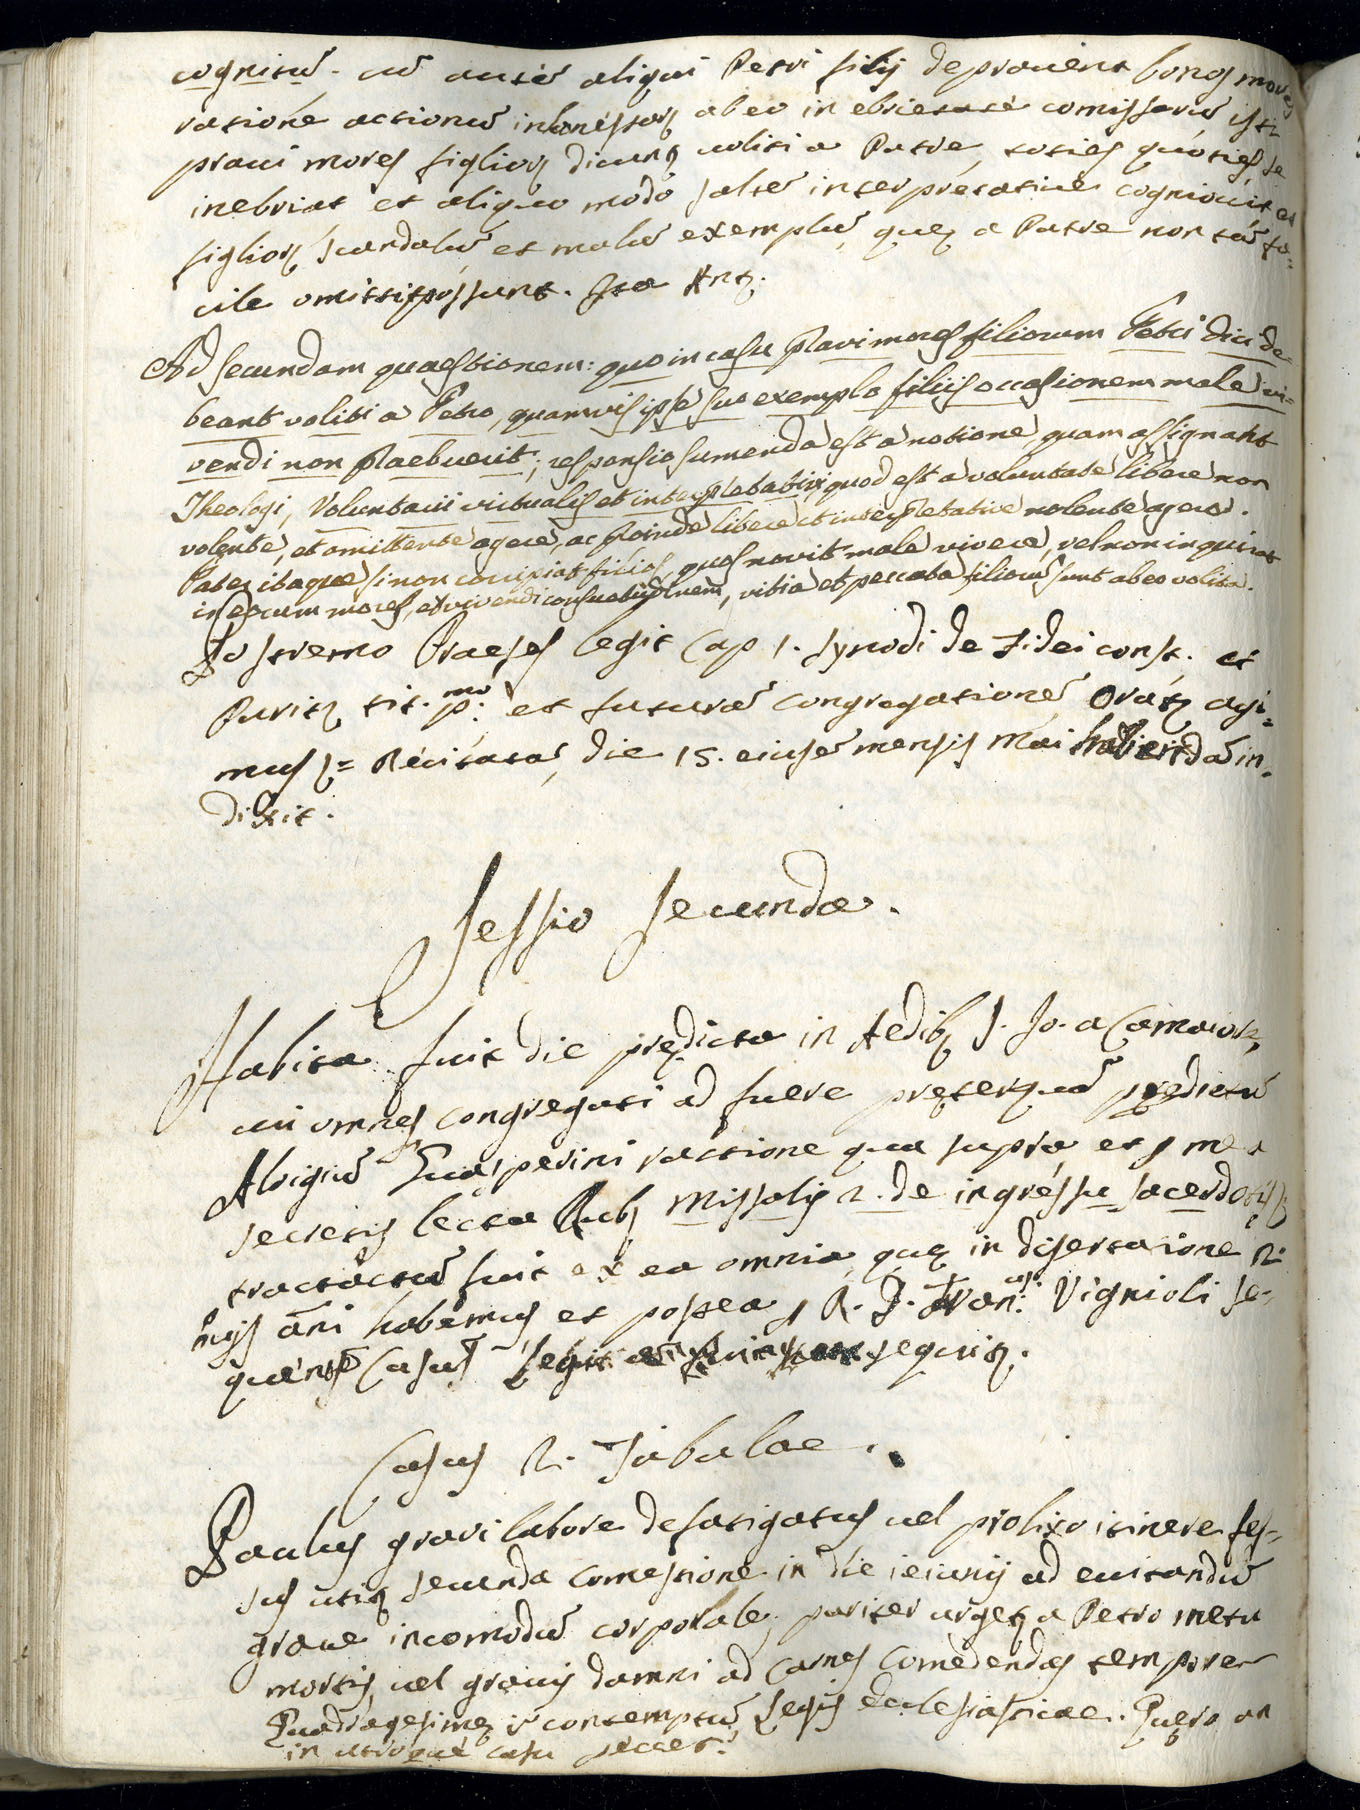 cognitũ. cũ autẽ aliqui Petri filij depravent bonos mores
ratione actionũ inhonestarũ ab eo in ebrietate comissarũ isti
pravi mores figliorũ dicunt̃ voliti a Patre, toties quoties se
inebriat et aliquo modo saltẽ interpretative cognovit et
figliorũ scandalũ et malũ exemplũ, quę a Patre non tã fa=
cile omitti possunt. Ita
Ad secundam quaestionem: quo in casu pravi mores filiorum Petri dici de=
beant voliti a Petro, quamvis ipse suo exemplo filiis occasionem male vi=
vendi non praebuerit; responsio sumenda est a notione, quam assignant
Theologi, Voluntarii virtualis et interpretativi, quod est a voluntate libere non
volente, et omittente agere, ac proinde libere et interpretative nolente agere.
Pater itaque si non corripiat filios, quos novit male vivere, vel non inquirat
in eorum mores, et vivendi consuetudinem, vitia et peccata filiorũ sunt ab eo volita.
Postremo Praeses legit Cap 1. synodi de Fidei const. et
Parit̃ tit. p.mo et futurã congregationẽ, Orat̃ agi=
mus = Recitata, die 15. eiusdẽ mensis Mai habendã in=
dixit.
Sessio secunda.
Habita fuit die prędicta in Aedib̃ S. Jo. a
cui omnes congregati ad fuere pręterquã prędictũ
Aloigiũ Guasperini ractione qua supra et
secretis lecta Rub̃ Missalis 2. de ingressu sacerdotis
tractactũ fuit ex ea omnia, quę in disertatione
ãni habemus et postea R. D. Vignioli se=
quentẽ Casũ legit sequit̃.
Casus 2. Tabulae.
Paulus gravi labore defatigatus vel prolixo itinere fes=
sus utit̃ secunda comestione in die ieiunij ad evitandũ
grave incomodũ corporale; pariter urget̃ a Petro metu
mortis, vel gravis damni ad carnes comedendas tempore
Quadragesimę ĩ contemptũ Legis Ecclesiasticae. Quęro an
in utroque casu peccet?